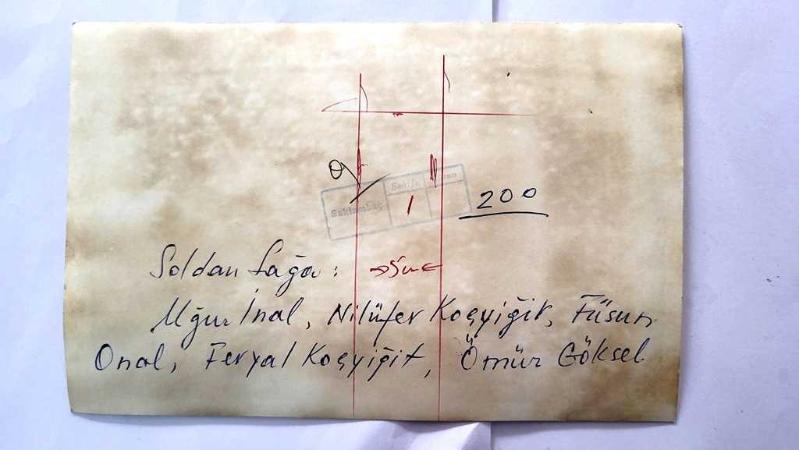 Sahife
1
200
Soldan Sağa:
→5 cm←
Uğur İnal, Nilüfer Koçyiğit, Füsun
Önal, Feryal Koçyiğit, Ömür Göksel